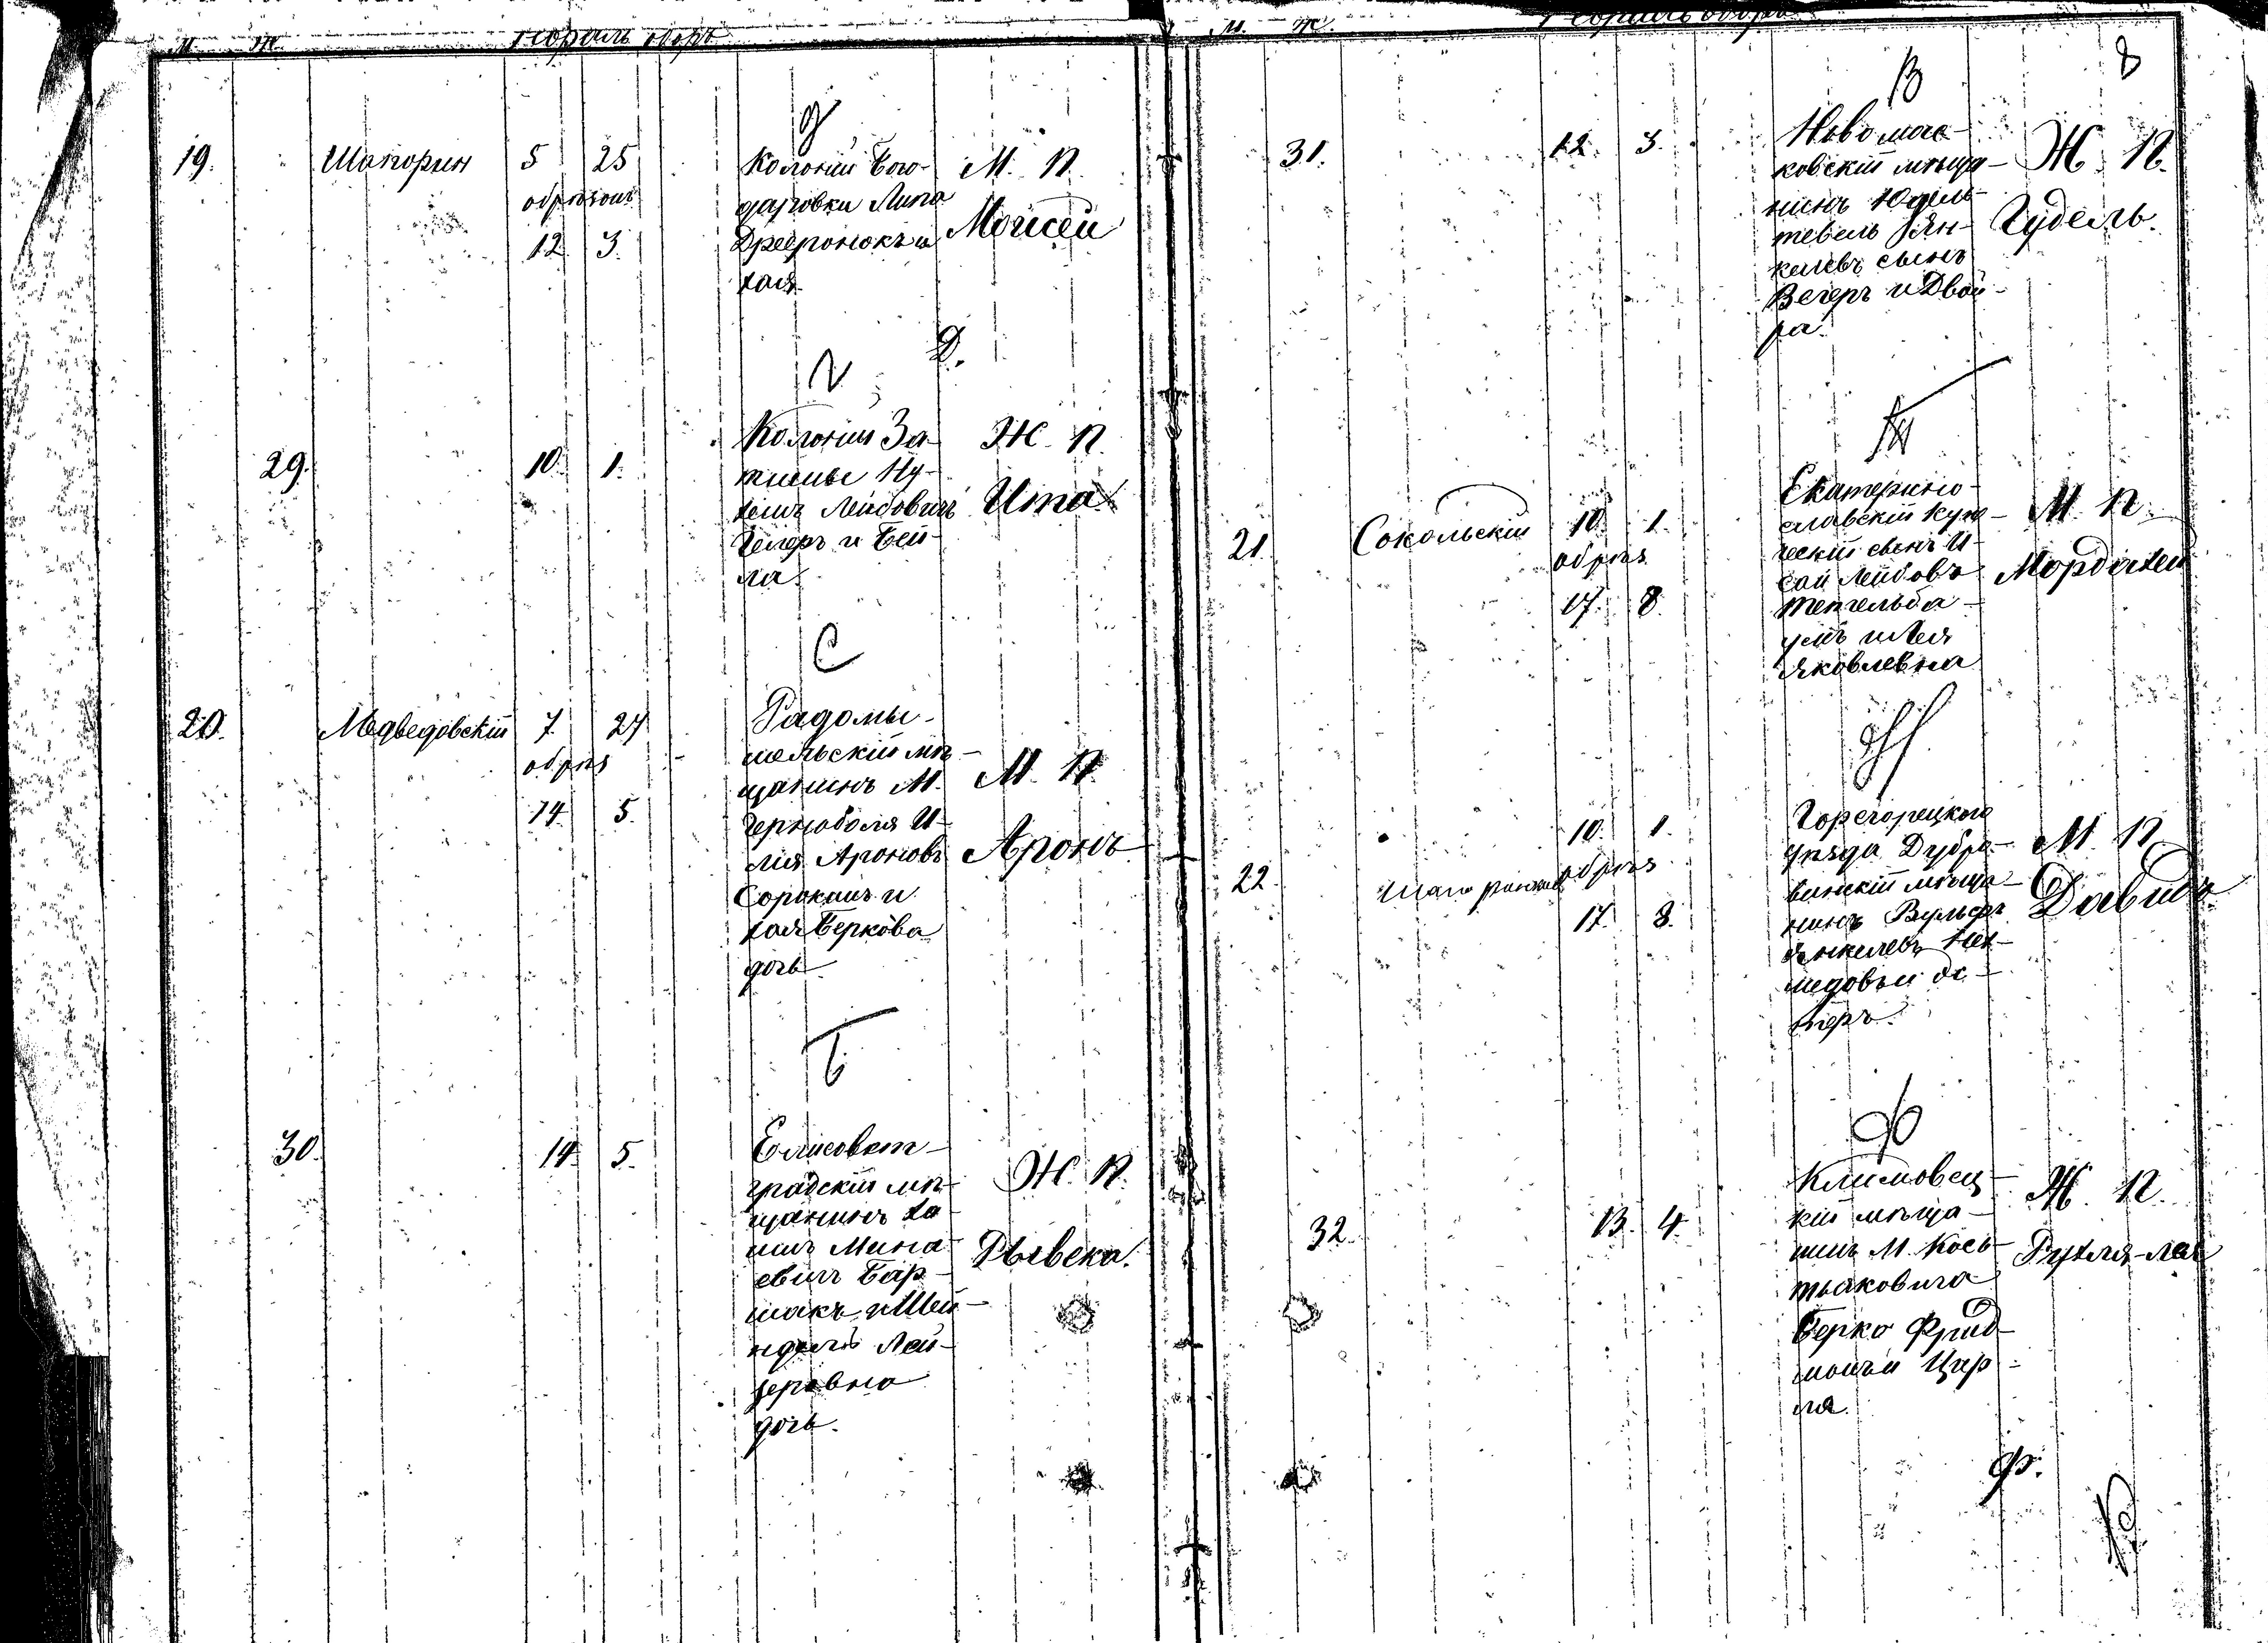 М. Ж.
д
19. Шапорин 5 25
обрезанъ
12 3.
Колоніи Бого-
даровки Липа
хая
М. П.
Мойсей
Д.
29. 10. 1.
Колоніи За-
тишье Ну-
химъ Лейбовичъ
и Бей-
ла.
Ж. П.
Ита
С
20. Медведовскій 7. 27
обрѣз
14 5.
Радомы-
шельскій мѣ-
щанинъ М.
Черноболя И-
лія Ароновъ
Сорокинъ и
хая Беркова
дочь
М. П.
Аронъ
Б
30. 14. 5.
Елисовет-
градскій мѣ-
щанинъ Ха-
имъ Мина-
евичъ Бар-
шакъ и Шей-
ндель Лей-
зеровна
дочь.
Ж. П.
Рывека.
М. Ж.
8
В
31. 12. 3.
Новомос-
ковскій мѣща-
нинъ Юдель
тевель Ян-
келевъ сынъ
Вегеръ и Двой-
ра.
Ж. П.
Гудель.
21. Сокольскій 10. 1.
обрѣз
17. 8.
Екатерино-
славскій купе-
ческій сынъ И-
сай Лейбовъ
Тейтельба-
умъ и Лея
Яковлевна
М. П.
Мордахей
22. 10. 1.
обрѣз
17. 8.
Горегорецкого
уѣзда Дубро-
винскій мѣща-
нинъ Вульфъ
Янкелевъ
Эс-
теръ.
М. П.
Давидъ
Ф
32. 13. 4.
Климовец-
кій мѣща-
нинъ М. Кось-
тьяковича
Берко Фрид-
манъ и Цир-
ля.
Ж. П.
Рухля-лея
Ф.